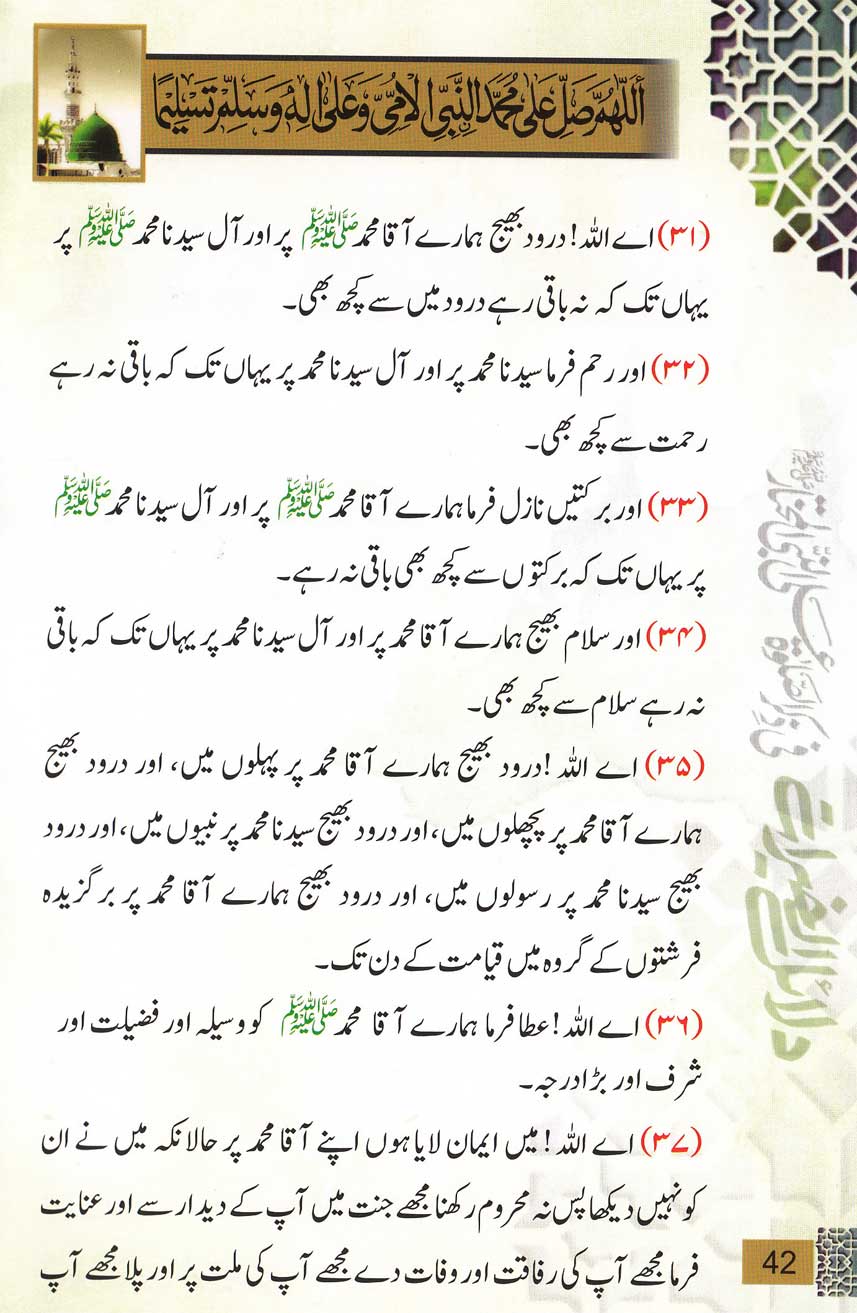 أَللّٰهُمَّ صَلِّ عَلٰى مُحَمَّدِ النَّبِيِّ الْأُمِّيِّ وَعَلٰى اٰلِهٖ وَسَلِّمْ تَسْلِيْمًا
(۳۱) اے اللہ! درود بھیج ہمارے آقا محمد ﷺ پر اور آل سیدنا محمد ﷺ پر
یہاں تک کہ نہ باقی رہے درود میں سے کچھ بھی۔
(۳۲) اور رحم فرما سیدنا محمد پر اور آل سیدنا محمد پر یہاں تک کہ باقی نہ رہے
رحمت سے کچھ بھی۔
(۳۳) اور برکتیں نازل فرما ہمارے آقا محمد ﷺ پر اور آل سیدنا محمد ﷺ
پر یہاں تک کہ برکتوں سے کچھ بھی باقی نہ رہے۔
(۳۴) اور سلام بھیج ہمارے آقا محمد پر اور آل سیدنا محمد پر یہاں تک کہ باقی
نہ رہے سلام سے کچھ بھی۔
(۳۵) اے اللہ! درود بھیج ہمارے آقا محمد پر پہلوں میں، اور درود بھیج
ہمارے آقا محمد پر پچھلوں میں، اور درود بھیج سیدنا محمد پر نبیوں میں، اور درود
بھیج سیدنا محمد پر رسولوں میں، اور درود بھیج ہمارے آقا محمد پر برگزیدہ
فرشتوں کے گروہ میں قیامت کے دن تک۔
(۳۶) اے اللہ! عطا فرما ہمارے آقا محمد ﷺ کو وسیلہ اور فضیلت اور
شرف اور بڑا درجہ۔
(۳۷) اے اللہ! میں ایمان لایا ہوں اپنے آقا محمد پر حالانکہ میں نے ان
کو نہیں دیکھا پس نہ محروم رکھنا مجھے جنت میں آپ کے دیدار سے اور عنایت
فرما مجھے آپ کی رفاقت اور وفات دے مجھے آپ کی ملت پر اور پلا مجھے آپ
دلائل الخیرات
42